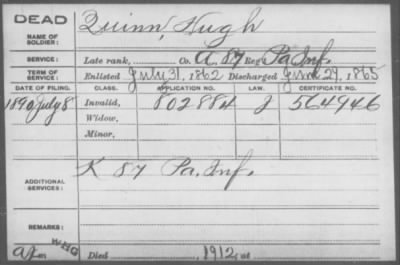 DEAD
NAME OF SOLDIER: Quinn, Hugh
SERVICE: Late rank, Co. A, 87 Reg't Pa. Inf.
TERM OF SERVICE: Enlisted July 31, 1862 Discharged June 29, 1865
DATE OF FILING. CLASS. APPLICATION NO. LAW. CERTIFICATE NO.
1890 July 8 Invalid, 802884 J 564946
Widow,
Minor,
ADDITIONAL SERVICES: K 87 Pa. Inf.
REMARKS:
WHG Died 1912, at